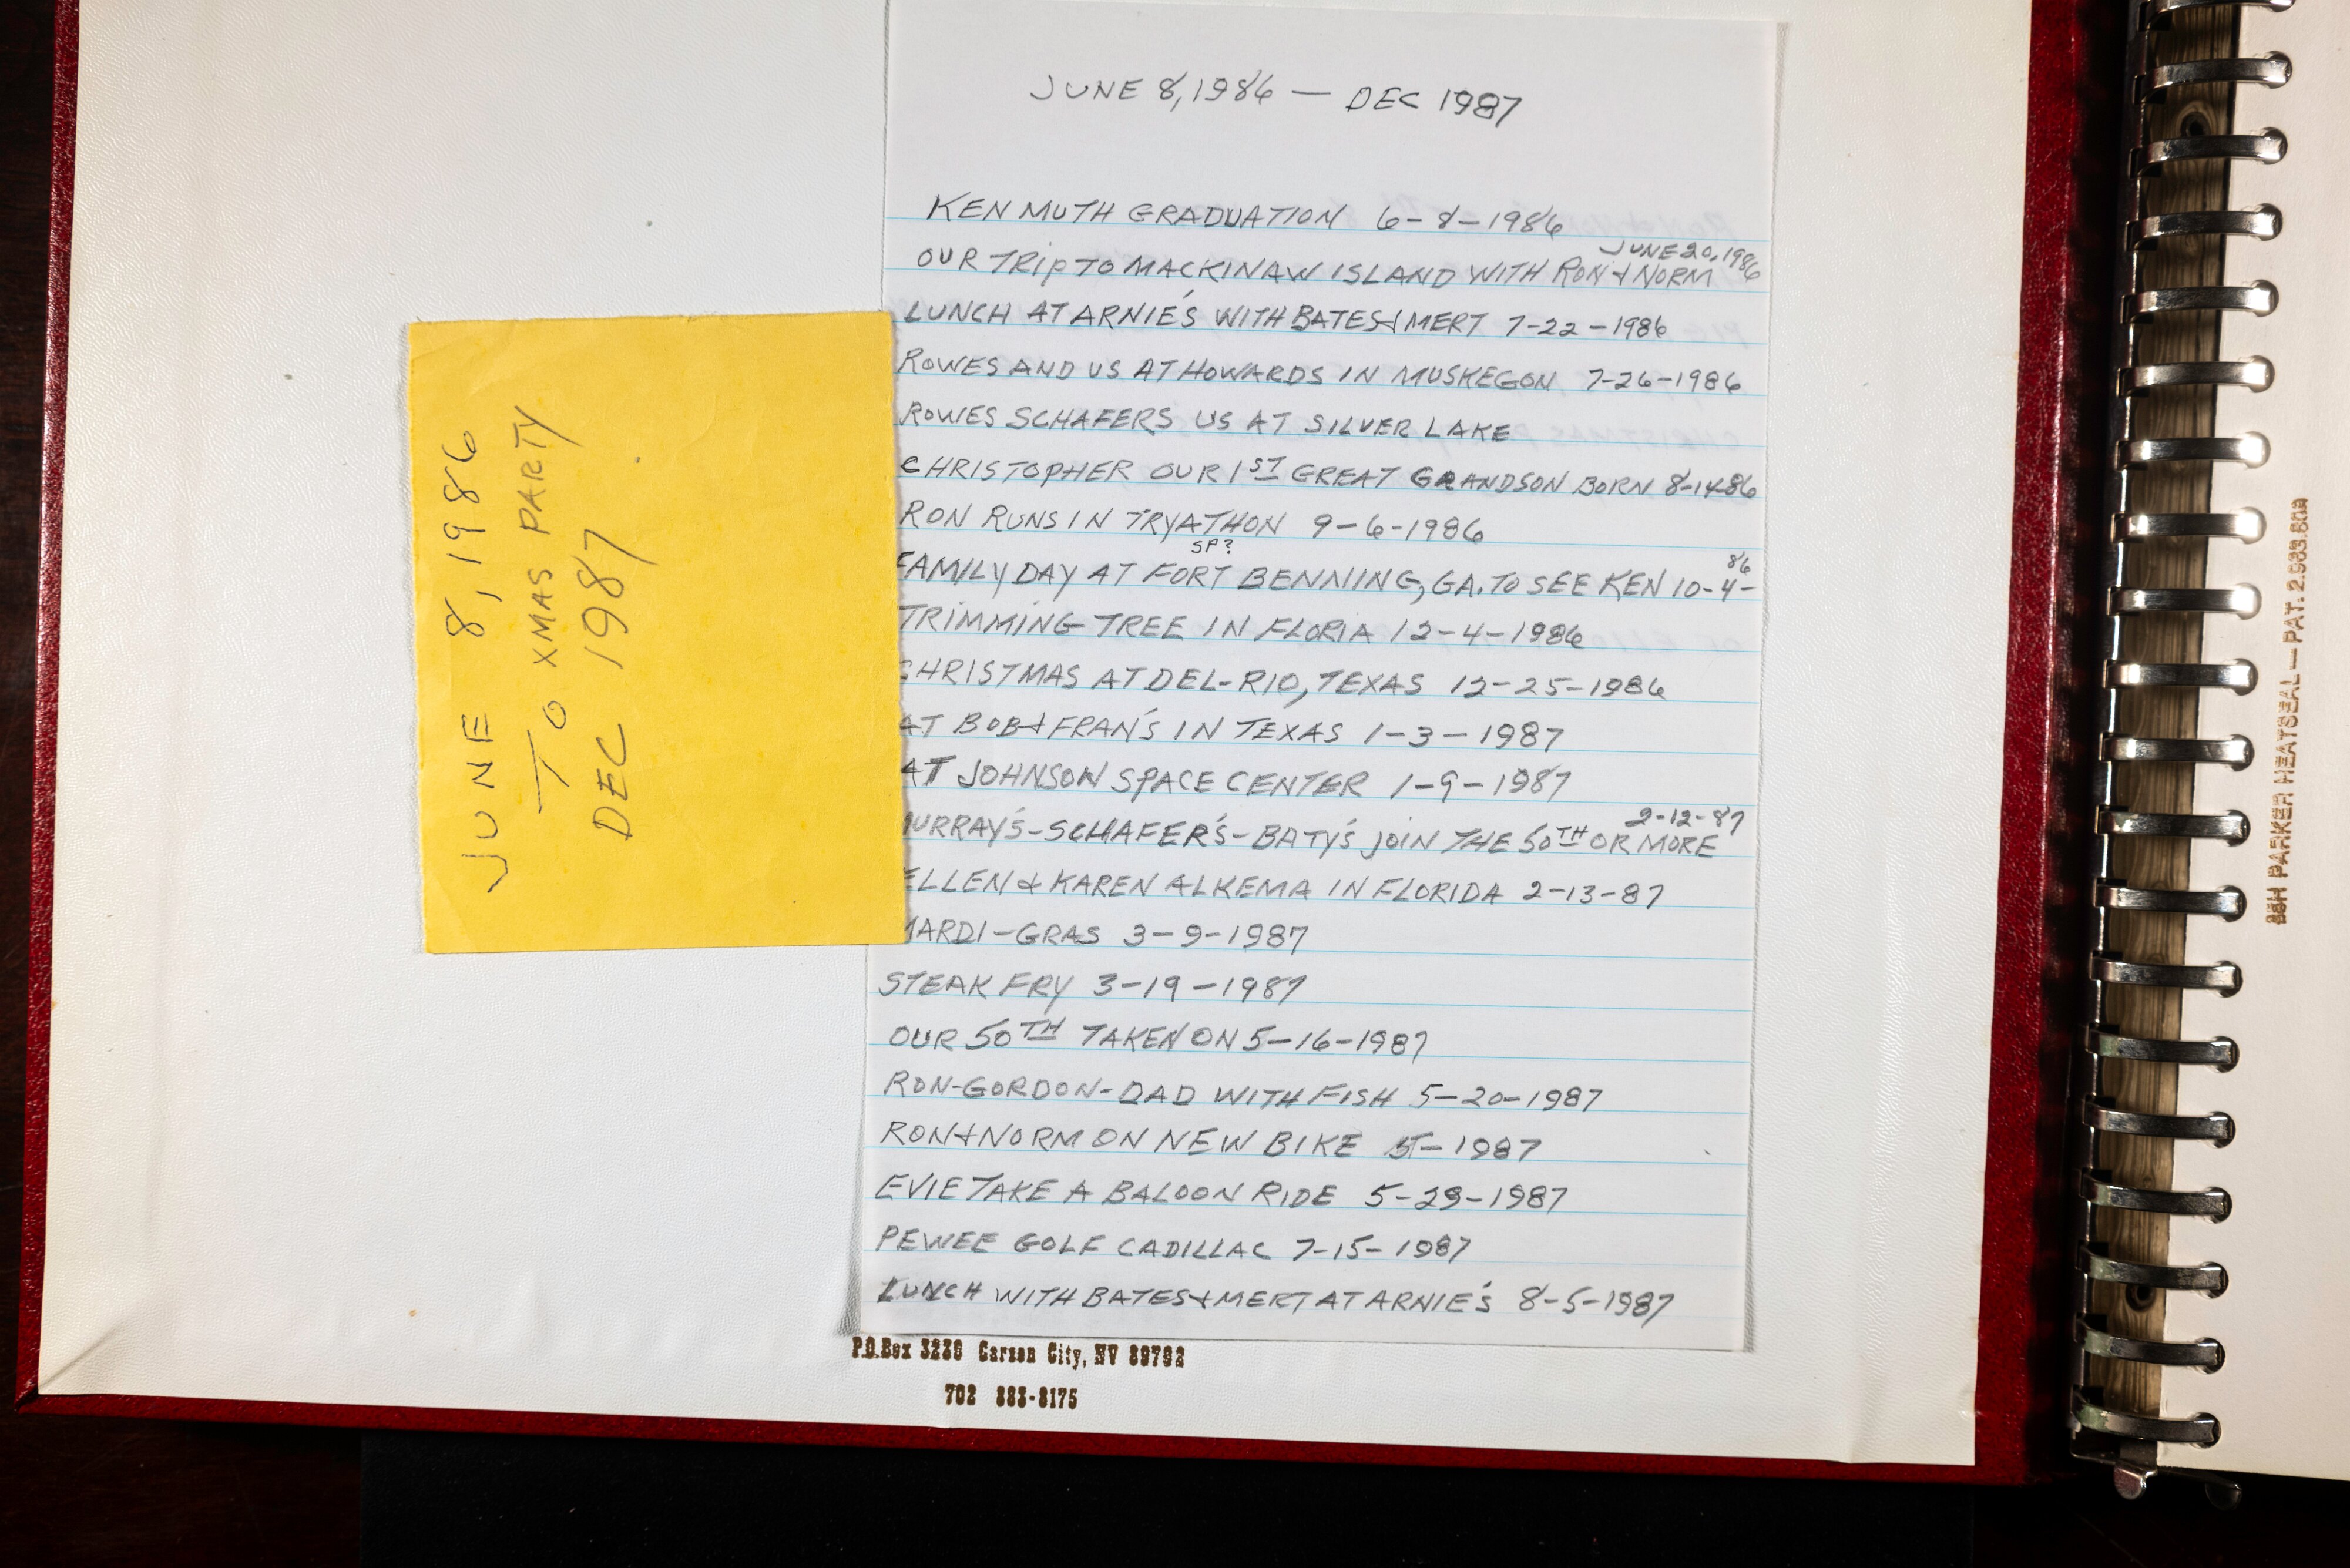 JUNE 8, 1986
TO XMAS PARTY
DEC 1987
JUNE 8, 1986 — DEC 1987
KEN MUTH GRADUATION 6-8-1986
JUNE 20, 1986
OUR TRIP TO MACKINAW ISLAND WITH RON & NORM
LUNCH AT ARNIE'S WITH BATES & MERT 7-22-1986
ROWES AND US AT HOWARDS IN MUSKEGON 7-26-1986
ROWES SCHAFERS US AT SILVER LAKE
CHRISTOPHER OUR 1ST GREAT GRANDSON BORN 8-14-86
RON RUNS IN TRYATHON 9-6-1986
SP?
FAMILY DAY AT FORT BENNING, GA. TO SEE KEN 10-4-86
TRIMMING TREE IN FLORIA 12-4-1986
CHRISTMAS AT DEL-RIO, TEXAS 12-25-1986
AT BOB & FRAN'S IN TEXAS 1-3-1987
AT JOHNSON SPACE CENTER 1-9-1987
2-12-87
MURRAY'S-SCHAFER'S-BATY'S JOIN THE 50TH OR MORE
ELLEN & KAREN ALKEMA IN FLORIDA 2-13-87
MARDI-GRAS 3-9-1987
STEAK FRY 3-19-1987
OUR 50TH TAKEN ON 5-16-1987
RON-GORDON-DAD WITH FISH 5-20-1987
RON & NORM ON NEW BIKE 5-1987
EVIE TAKE A BALOON RIDE 5-29-1987
PEWEE GOLF CADILLAC 7-15-1987
LUNCH WITH BATES & MERT AT ARNIE'S 8-5-1987
P.O.Box Carson City, NV
702 883-8175
BBH PARKER HEATSEAL—PAT.